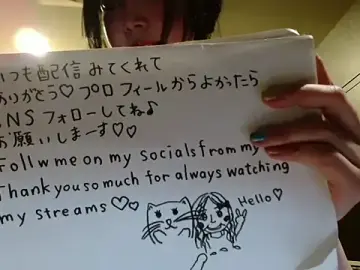 いつも配信みてくれて
ありがとう♡プロフィールからよかったら
SNSフォローしてね♪
お願いしまーす♡♡
Follw me on my socials from my
Thank you so much for always watching
my streams♡♡
Hello♡